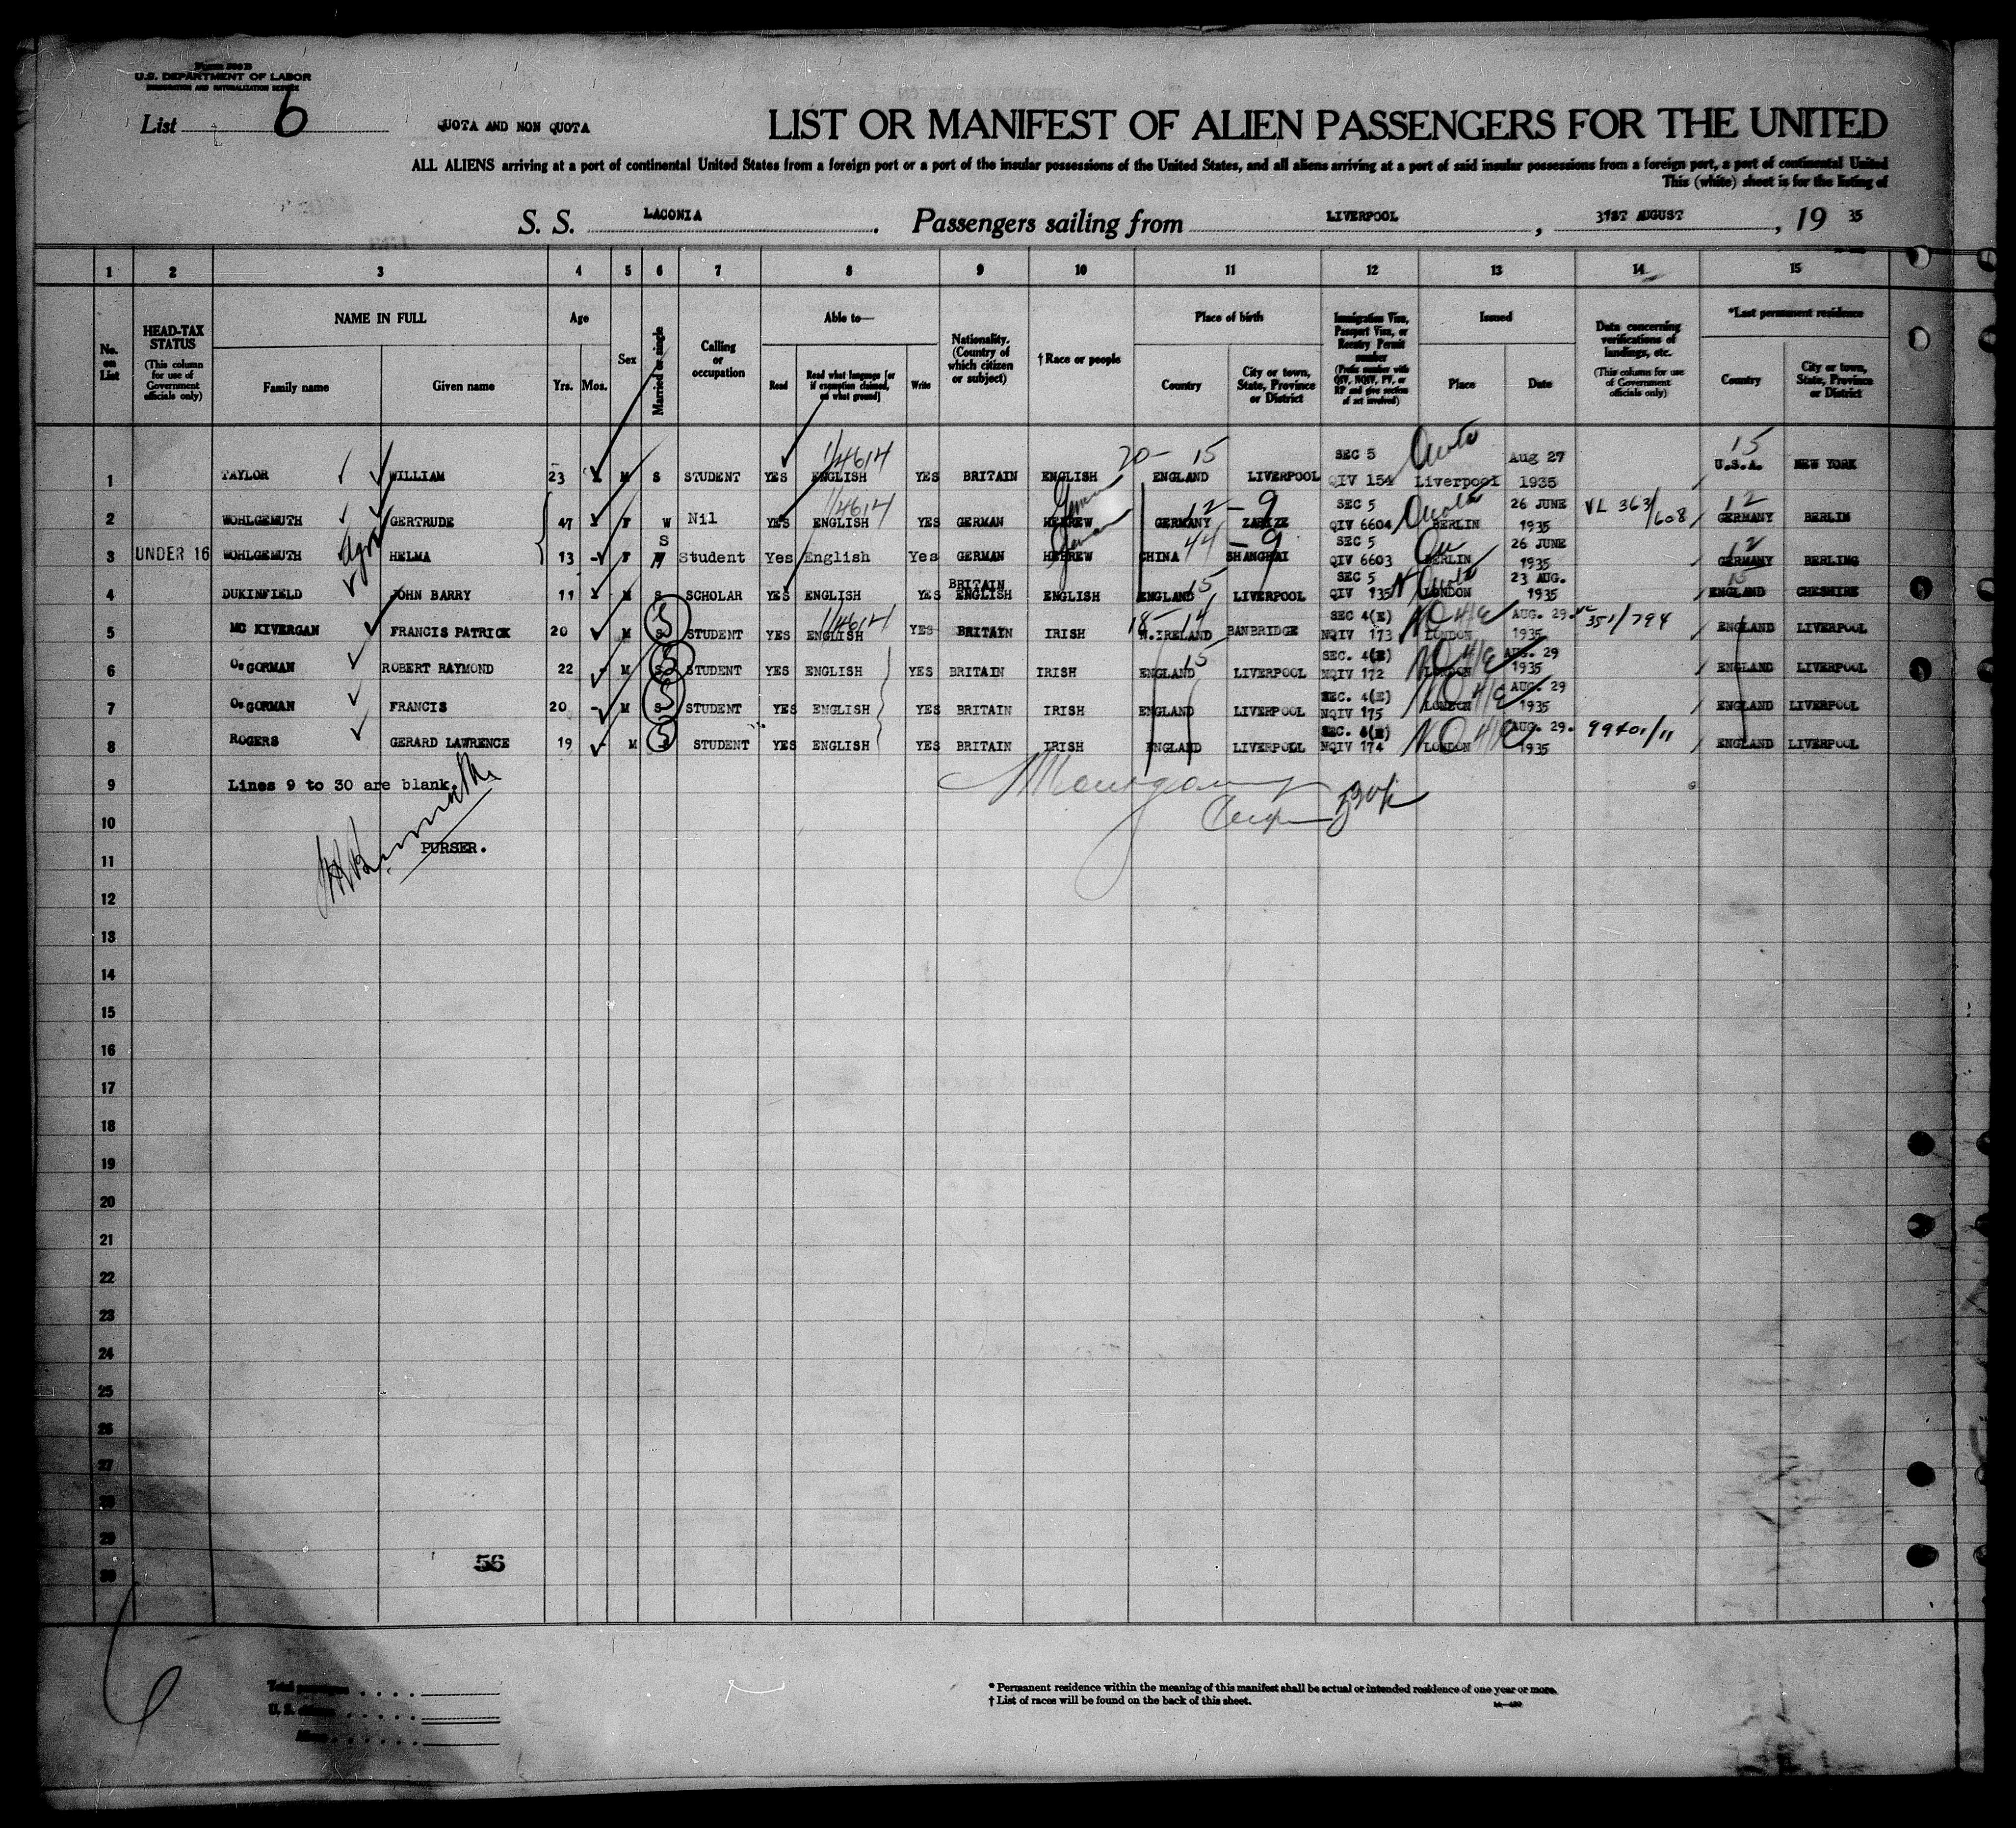 Form 500 B
U.S. DEPARTMENT OF LABOR
IMMIGRATION AND NATURALIZATION SERVICE
List 6
QUOTA AND NON QUOTA
LIST OR MANIFEST OF ALIEN PASSENGERS FOR THE UNITED
ALL ALIENS arriving at a port of continental United States from a foreign port or a port of the insular possessions of the United States, and all aliens arriving at a port of said insular possessions from a foreign port, a port of continental United
This (white) sheet is for the listing of
S. S. LACONIA . Passengers sailing from LIVERPOOL , 31ST AUGUST , 19 35
1 2 3 4 5 6 7 8 9 10 11 12 13 14 15
No. on List
HEAD-TAX STATUS (This column for use of Government officials only)
NAME IN FULL Family name Given name
Age Yrs. Mos.
Sex
Married or single
Calling or occupation
Able to— Read Read what language [or if exemption claimed, on what ground] Write
Nationality. (Country of which citizen or subject)
† Race or people
Place of birth Country City or town, State, Province or District
Immigration Visa, Passport Visa, or Reentry Permit number (Prefix number with QIV, NQIV, PV, or RP and give section of act involved)
Issued Place Date
Data concerning verifications of landings, etc. (This column for use of Government officials only)
*Last permanent residence Country City or town, State, Province or District
1 TAYLOR WILLIAM 23 M S STUDENT YES ENGLISH YES BRITAIN ENGLISH 20- 15 ENGLAND LIVERPOOL SEC 5 QIV 154 Liverpool Aug 27 1935 15 U.S.A. NEW YORK
2 WOHLGEMUTH GERTRUDE 47 F W Nil YES ENGLISH YES GERMAN HEBREW German GERMANY 12 - 9 ZABRZE SEC 5 QIV 6604 Quota BERLIN 26 JUNE 1935 VL 363/608 12 GERMANY BERLIN
3 UNDER 16 WOHLGEMUTH HELMA 13 - F S Student Yes English Yes GERMAN HEBREW German CHINA 44 - 9 SHANGHAI SEC 5 QIV 6603 Qu BERLIN 26 JUNE 1935 12 GERMANY BERLING
4 DUKINFIELD JOHN BARRY 11 - M S SCHOLAR YES ENGLISH YES BRITAIN ENGLISH ENGLISH ENGLAND 15 LIVERPOOL SEC 5 QIV 135 LONDON 23 AUG. 1935 15 ENGLAND CHESHIRE
5 MC KIVERGAN FRANCIS PATRICK 20 M S STUDENT YES ENGLISH YES BRITAIN IRISH 18- 14 N.IRELAND BANBRIDGE SEC 4(E) NQIV 173 NQ 4/E LONDON AUG. 29. 1935 351/794 ENGLAND LIVERPOOL
6 O'GORMAN ROBERT RAYMOND 22 - M S STUDENT YES ENGLISH YES BRITAIN IRISH ENGLAND 15 LIVERPOOL SEC. 4(E) NQIV 172 NQ 4/E LONDON AUG. 29 1935 ENGLAND LIVERPOOL
7 O'GORMAN FRANCIS 20 - M S STUDENT YES ENGLISH YES BRITAIN IRISH ENGLAND LIVERPOOL SEC. 4(E) NQIV 175 NQ 4/E LONDON AUG. 29 1935 ENGLAND LIVERPOOL
8 ROGERS GERARD LAWRENCE 19 - M S STUDENT YES ENGLISH YES BRITAIN IRISH ENGLAND LIVERPOOL SEC. 4(E) NQIV 174 NQ 4/E LONDON AUG. 29. 1935 99401/11 ENGLAND LIVERPOOL
9 Lines 9 to 30 are blank.
10
PURSER.
11
12
13
14
15
16
17
18
19
20
21
22
23
24
25
26
27
28
29
30
56
Total passengers
U. S. citizens
Aliens
* Permanent residence within the meaning of this manifest shall be actual or intended residence of one year or more.
† List of races will be found on the back of this sheet.